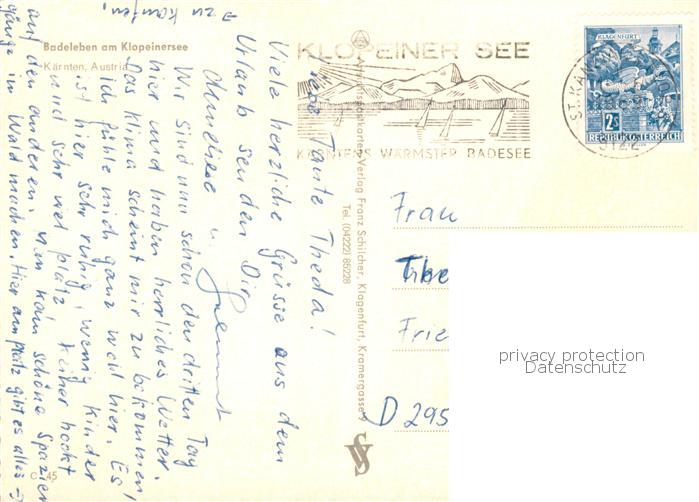 Badeleben am Klopeinersee
Kärnten, Austria
C 45
KLOPEINER SEE
KÄRNTENS WÄRMSTER BADESEE
KLAGENFURT
2S
REPUBLIK ÖSTERREICH
ST.KANZIAN
9122
Ansichtspostkarten-Verlag Franz Schilcher, Klagenfurt, Kramergasse 9
Tel. (04222) 85228
Liebe Tante Theda!
Viele herzliche Grüsse aus dem
Urlaub senden Dir
Anneliese u. Helmut
Wir sind nun schon den dritten Tag
hier und haben herrliches Wetter.
Das Klima scheint mir zu bekommen,
ich fühle mich ganz wohl hier. Es
ist hier sehr ruhig, wenig Kinder
und sehr viel Platz. Keiner hockt
auf den anderen. Man kann schöne Spazier
gänge in Wald machen. Hier am Platz gibt es alles →
→ zu kaufen.
Frau
Frie
D 295
privacy protection
Datenschutz